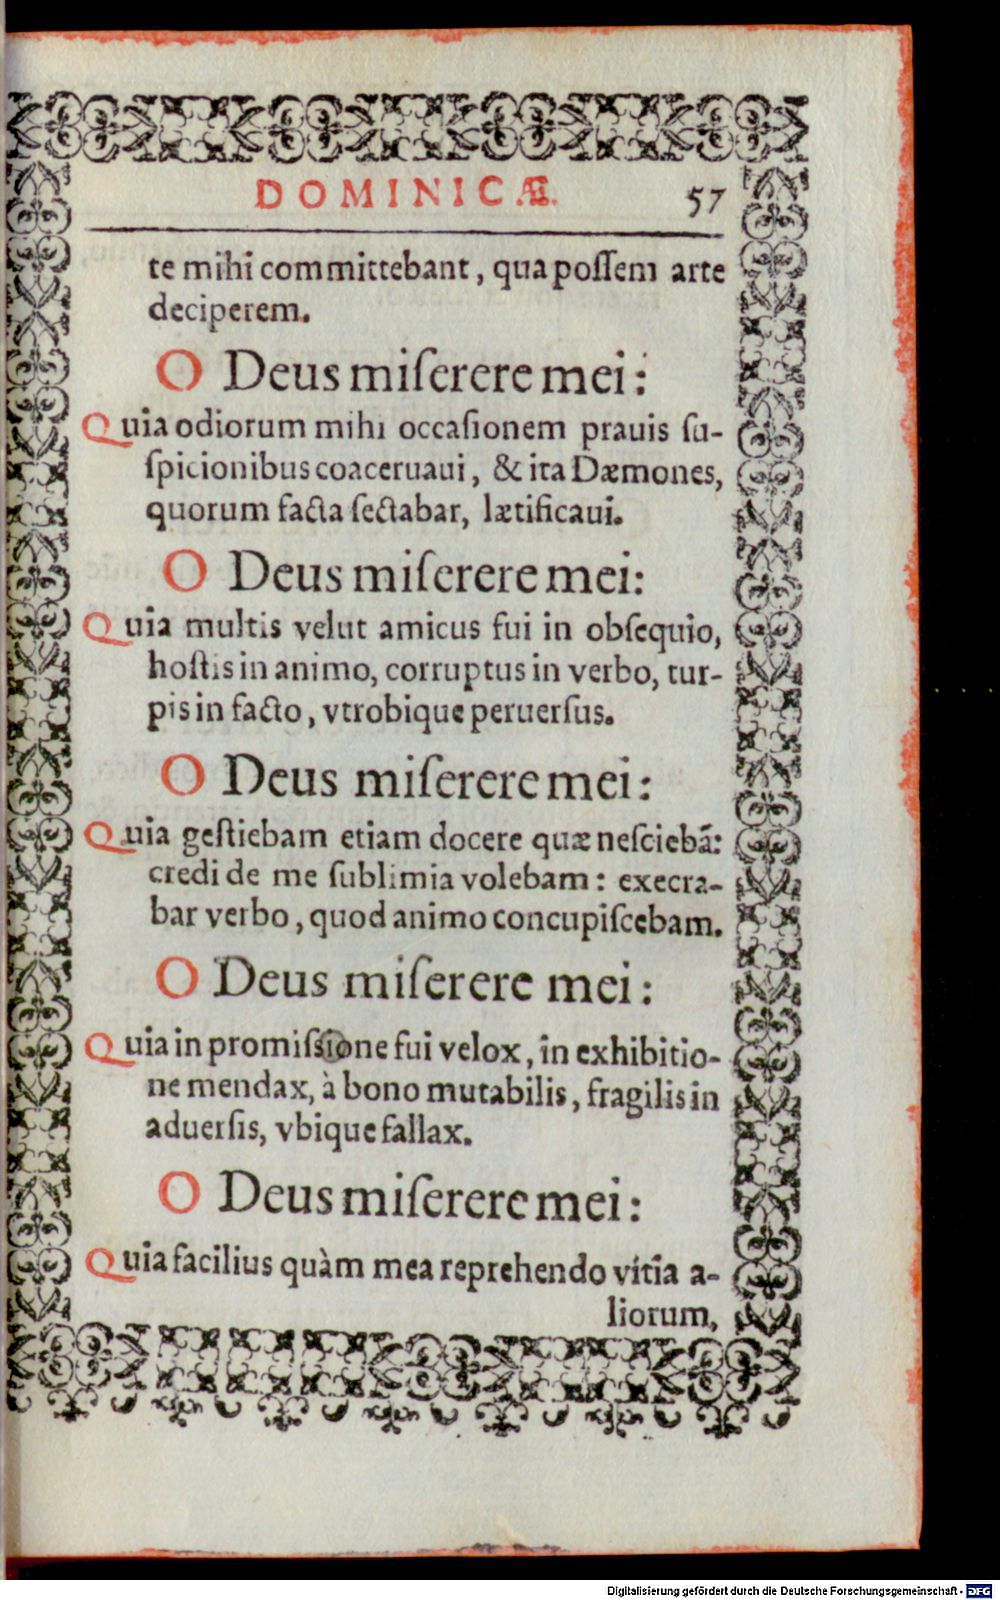 DOMINICÆ. 57
te mihi committebant, qua poſſem arte
deciperem.
O Deus miſerere mei:
Quia odiorum mihi occaſionem prauis ſu-
ſpicionibus coaceruaui, & ita Dæmones,
quorum facta ſectabar, lætificaui.
O Deus miſerere mei:
Quia multis velut amicus fui in obſequio,
hoſtis in animo, corruptus in verbo, tur-
pis in facto, vtrobique peruerſus.
O Deus miſerere mei:
Quia geſtiebam etiam docere quæ neſciebā:
credi de me ſublimia volebam: execra-
bar verbo, quod animo concupiſcebam.
O Deus miſerere mei:
Quia in promiſsione fui velox, in exhibitio-
ne mendax, à bono mutabilis, fragilis in
aduerſis, vbique fallax.
O Deus miſerere mei:
Quia facilius quàm mea reprehendo vitia a-
liorum,
Digitalisierung gefördert durch die Deutsche Forschungsgemeinschaft - DFG